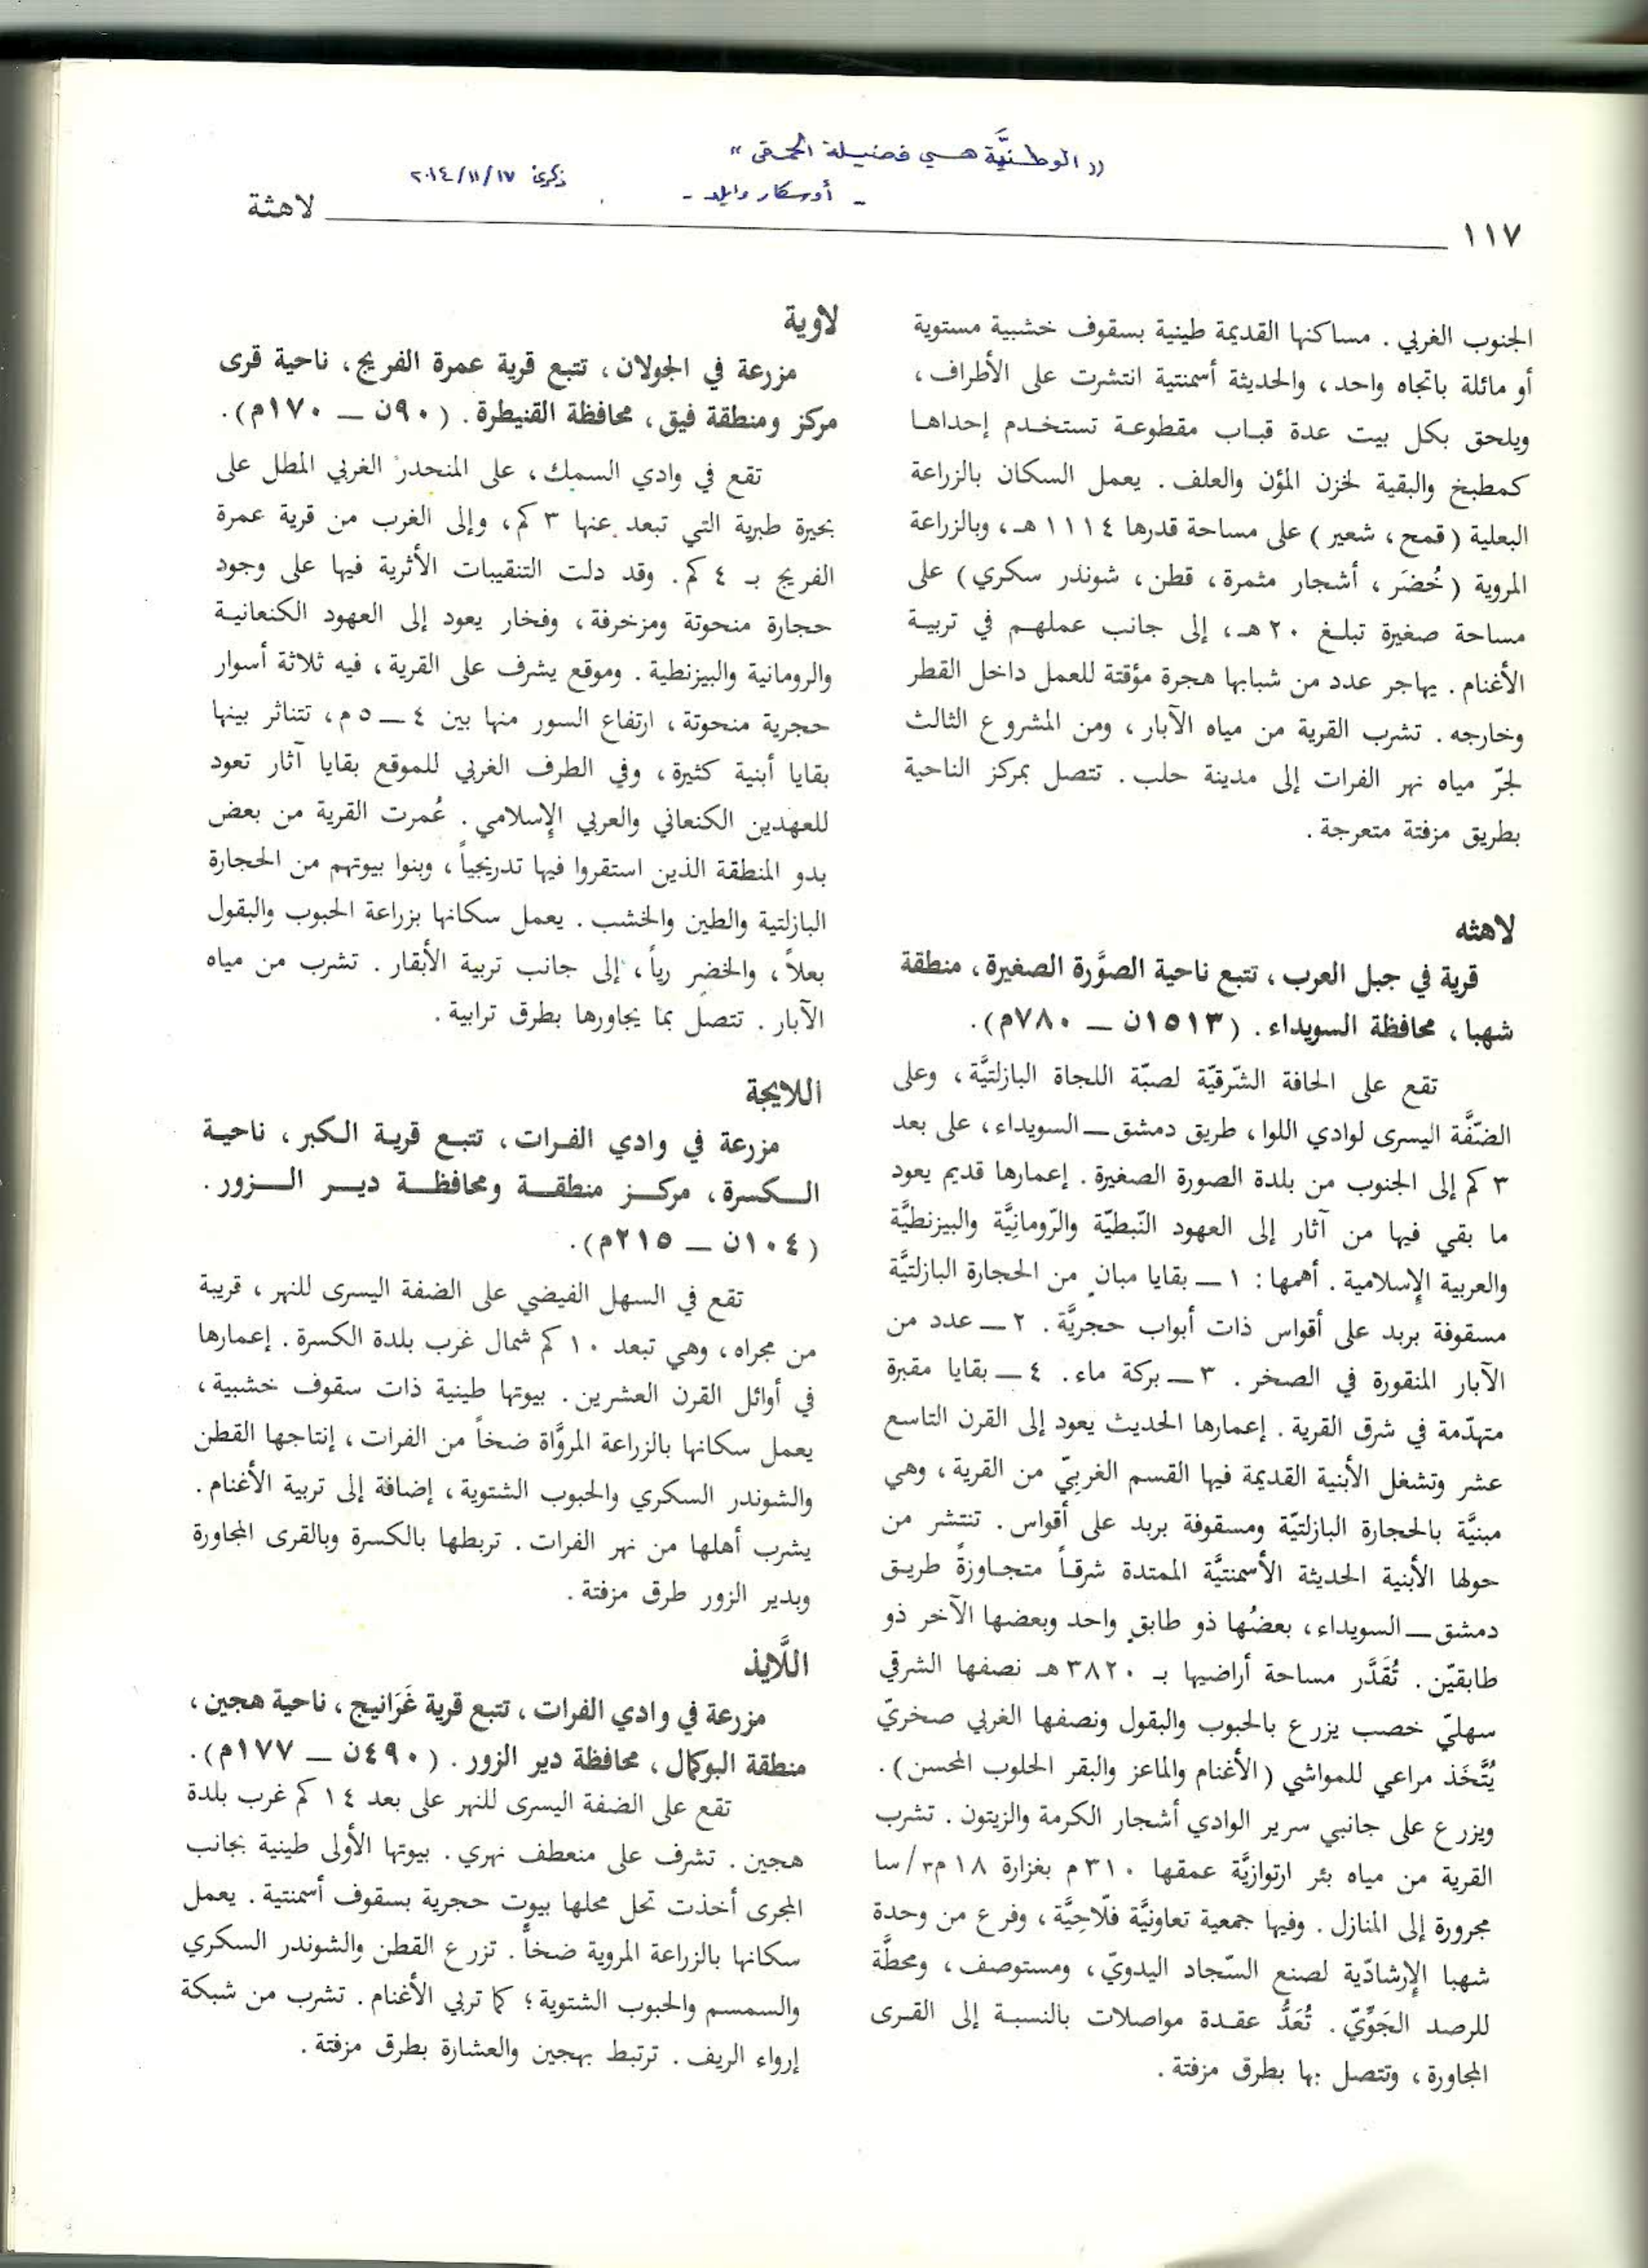 ((الوطنيَّة هي فضيلة الحمقى))
- أوسكار وايلد -
ذكرى ٢٠١٤/١١/١٧
١١٧
لاهثة
الجنوب الغربي. مساكنها القديمة طينية بسقوف خشبية مستوية
أو مائلة باتجاه واحد، والحديثة أسمنتية انتشرت على الأطراف،
ويلحق بكل بيت عدة قباب مقطوعة تستخدم إحداها
كمطبخ والبقية لخزن المؤن والعلف. يعمل السكان بالزراعة
البعلية (قمح، شعير) على مساحة قدرها ١١١٤هـ، وبالزراعة
المروية (خُضَر، أشجار مثمرة، قطن، شوندر سكري) على
مساحة صغيرة تبلغ ٢٠هـ، إلى جانب عملهم في تربية
الأغنام. يهاجر عدد من شبابها هجرة مؤقتة للعمل داخل القطر
وخارجه. تشرب القرية من مياه الآبار، ومن المشروع الثالث
لجرّ مياه نهر الفرات إلى مدينة حلب. تتصل بمركز الناحية
بطريق مزفتة متعرجة.
لاهثه
قرية في جبل العرب، تتبع ناحية الصوَّرة الصغيرة، منطقة
شهبا، محافظة السويداء. (١٥١٣ن — ٧٨٠م).
تقع على الحافة الشّرقيّة لصبّة اللجاة البازلتيَّة، وعلى
الضفَّة اليسرى لوادي اللوا، طريق دمشق — السويداء، على بعد
٣ كم إلى الجنوب من بلدة الصورة الصغيرة. إعمارها قديم يعود
ما بقي فيها من آثار إلى العهود النّبطيّة والرّومانِيَّة والبيزنطيَّة
والعربية الإسلامية. أهمها: ١ — بقايا مبانٍ من الحجارة البازلتيَّة
مسقوفة بربد على أقواس ذات أبواب حجريَّة. ٢ — عدد من
الآبار المنقورة في الصخر. ٣ — بركة ماء. ٤ — بقايا مقبرة
متهدّمة في شرق القرية. إعمارها الحديث يعود إلى القرن التاسع
عشر وتشغل الأبنية القديمة فيها القسم الغربيّ من القرية، وهي
مبنيَّة بالحجارة البازلتيّة ومسقوفة بربد على أقواس. تنتشر من
حولها الأبنية الحديثة الأسمنتيَّة الممتدة شرقاً متجاوزةً طريق
دمشق — السويداء، بعضُها ذو طابقٍ واحد وبعضها الآخر ذو
طابقيّن. تُقَدَّر مساحة أراضيها بـ ٣٨٢٠هـ نصفها الشرقي
سهليّ خصب يزرع بالحبوب والبقول ونصفها الغربي صخريّ
يُتَّخَذ مراعي للمواشي (الأغنام والماعز والبقر الحلوب المحسن).
ويزرع على جانبي سرير الوادي أشجار الكرمة والزيتون. تشرب
القرية من مياه بئر ارتوازيَّة عمقها ٣١٠م بغزارة ١٨م٣/سا
مجرورة إلى المنازل. وفيها جمعية تعاونيَّة فلّاحِيَّة، وفرع من وحدة
شهبا الإرشادّية لصنع السّجاد اليدويّ، ومستوصف، ومحطَّة
للرصد الجَوِّيّ. تُعَدُّ عقدة مواصلات بالنسبة إلى القرى
المجاورة، وتتصل بها بطرق مزفتة.
لاوية
مزرعة في الجولان، تتبع قرية عمرة الفريج، ناحية قرى
مركز ومنطقة فيق، محافظة القنيطرة. (٩٠ن — ١٧٠م).
تقع في وادي السمك، على المنحدر الغربي المطل على
بحيرة طبرية التي تبعد عنها ٣ كم، وإلى الغرب من قرية عمرة
الفريج بـ ٤ كم. وقد دلت التنقيبات الأثرية فيها على وجود
حجارة منحوتة ومزخرفة، وفخار يعود إلى العهود الكنعانية
والرومانية والبيزنطية. وموقع يشرف على القرية، فيه ثلاثة أسوار
حجرية منحوتة، ارتفاع السور منها بين ٤ — ٥م، تتناثر بينها
بقايا أبنية كثيرة، وفي الطرف الغربي للموقع بقايا آثار تعود
للعهدين الكنعاني والعربي الإسلامي. عُمرت القرية من بعض
بدو المنطقة الذين استقروا فيها تدريجياً، وبنوا بيوتهم من الحجارة
البازلتية والطين والخشب. يعمل سكانها بزراعة الحبوب والبقول
بعلاً، والخضر رياً، إلى جانب تربية الأبقار. تشرب من مياه
الآبار. تتصل بما يجاورها بطرق ترابية.
اللايجة
مزرعة في وادي الفرات، تتبع قرية الكبر، ناحية
الكسرة، مركز منطقة ومحافظة دير الزور.
(١٠٤ن — ٢١٥م).
تقع في السهل الفيضي على الضفة اليسرى للنهر، قريبة
من مجراه، وهي تبعد ١٠ كم شمال غرب بلدة الكسرة. إعمارها
في أوائل القرن العشرين. بيوتها طينية ذات سقوف خشبية،
يعمل سكانها بالزراعة المروَّاة ضخاً من الفرات، إنتاجها القطن
والشوندر السكري والحبوب الشتوية، إضافة إلى تربية الأغنام.
يشرب أهلها من نهر الفرات. تربطها بالكسرة وبالقرى المجاورة
وبدير الزور طرق مزفتة.
اللَّايذ
مزرعة في وادي الفرات، تتبع قرية غَرَانيج، ناحية هجين،
منطقة البوكمال، محافظة دير الزور. (٤٩٠ن — ١٧٧م).
تقع على الضفة اليسرى للنهر على بعد ١٤ كم غرب بلدة
هجين. تشرف على منعطف نهري. بيوتها الأولى طينية بجانب
المجرى أخذت تحل محلها بيوت حجرية بسقوف أسمنتية. يعمل
سكانها بالزراعة المروية ضخاً. تزرع القطن والشوندر السكري
والسمسم والحبوب الشتوية؛ كما تربي الأغنام. تشرب من شبكة
إرواء الريف. ترتبط بهجين والعشارة بطرق مزفتة.